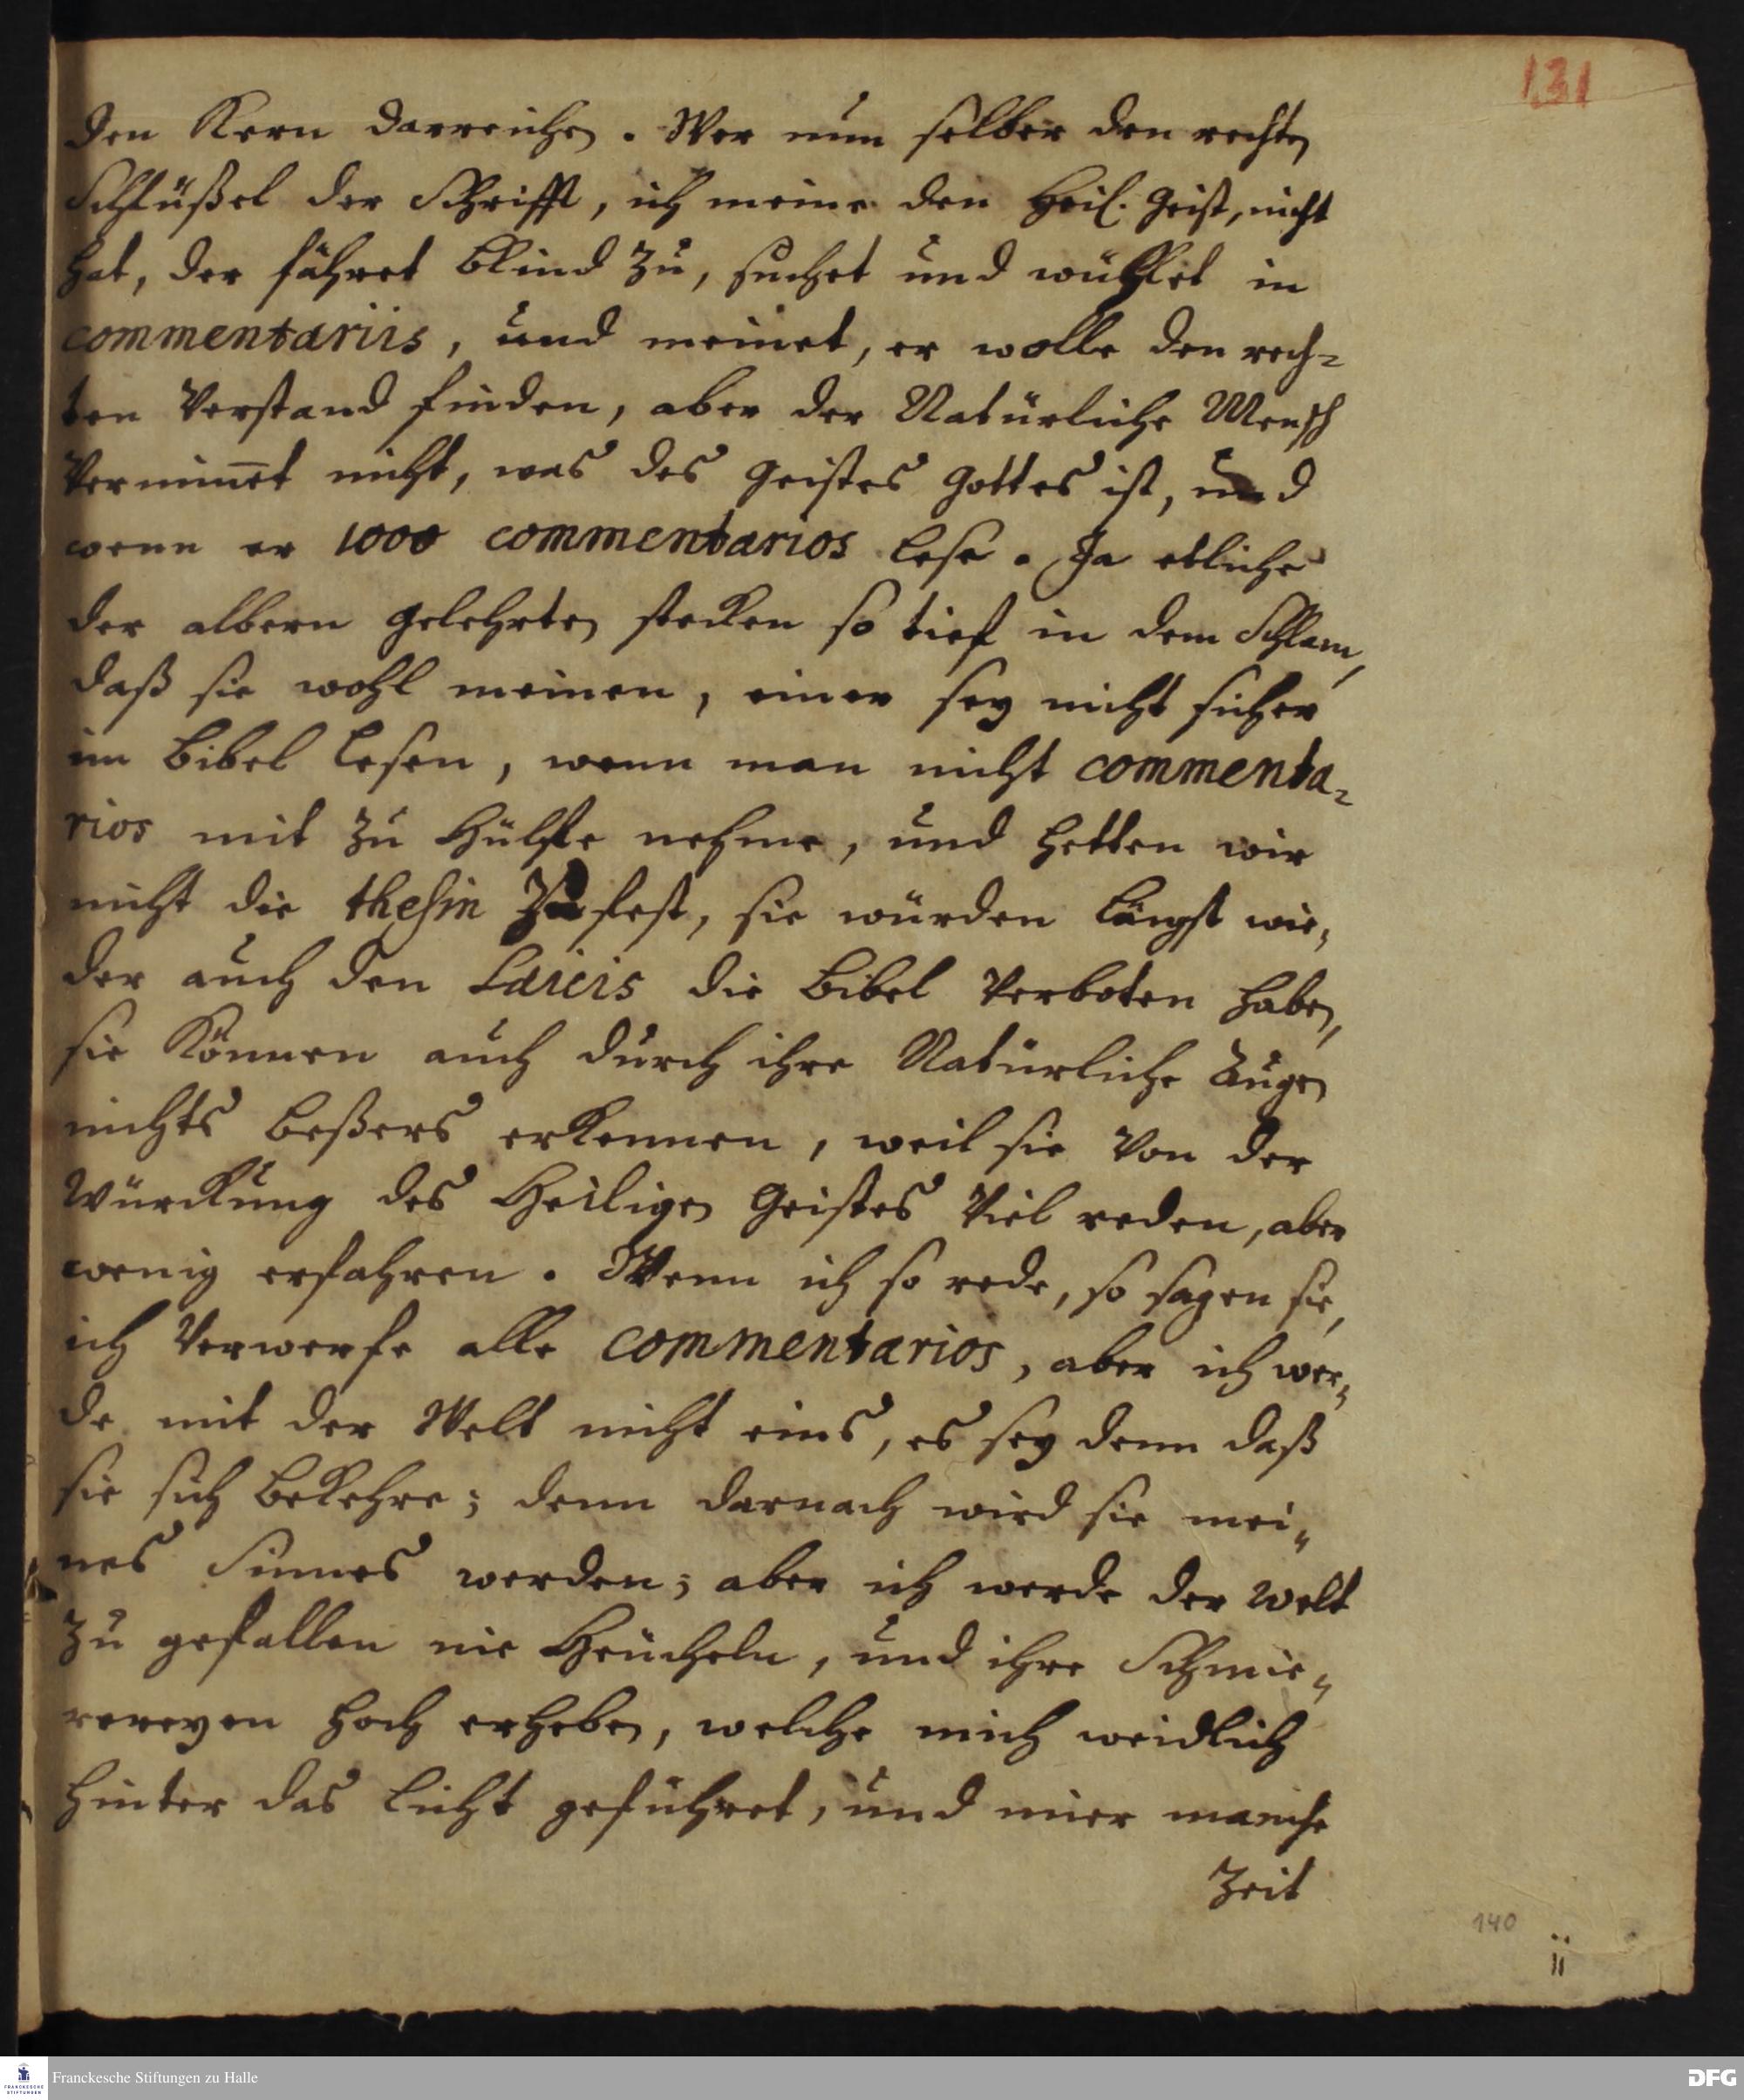 131
den Kern darreichen. Wer nun selber den rechten
Schlüßel der Schrifft, ich meine den Heil. Geist, nicht
hat, der fähret blind zu, suchet und wühlet in
commentariis, und meinet, er wolle den rech-
ten Verstand finden, aber der Natürliche Mensch
Vernim̅et nicht, was des Geistes Gottes ist, und
wenn er 1000 commentarios lese. Ja etliche
der albern gelehrten stecken so tief in dem Schlam,
daß sie wohl meinen, einer sey nicht sicher
im Bibel lesen, wenn man nicht commenta-
rios mit zu Hülffe nehme, und hetten wir
nicht die thesin zu fest, sie würden längst wie-
der auch den Laicis die Bibel Verboten haben,
sie Können auch durch ihre Natürliche Augen
nichts beßers erkennen, weil sie Von der
Würckung des Heiligen Geistes Viel reden, aber
wenig erfahren. Wenn ich so rede, so sagen sie,
ich Verwerfe alle commentarios, aber ich wer-
de mit der Welt nicht eins, es sey denn daß
sie sich bekehre; denn darnach wird sie mei-
nes Sinnes werden; aber ich werde der Welt
zu gefallen nie Heucheln, und ihre Schmie-
rereyen hoch erheben, welche mich weidlich
hinter das Licht geführet, und mier manche
Zeit
140
ii
FRANCKESCHE STIFTUNGEN
Franckesche Stiftungen zu Halle
DFG